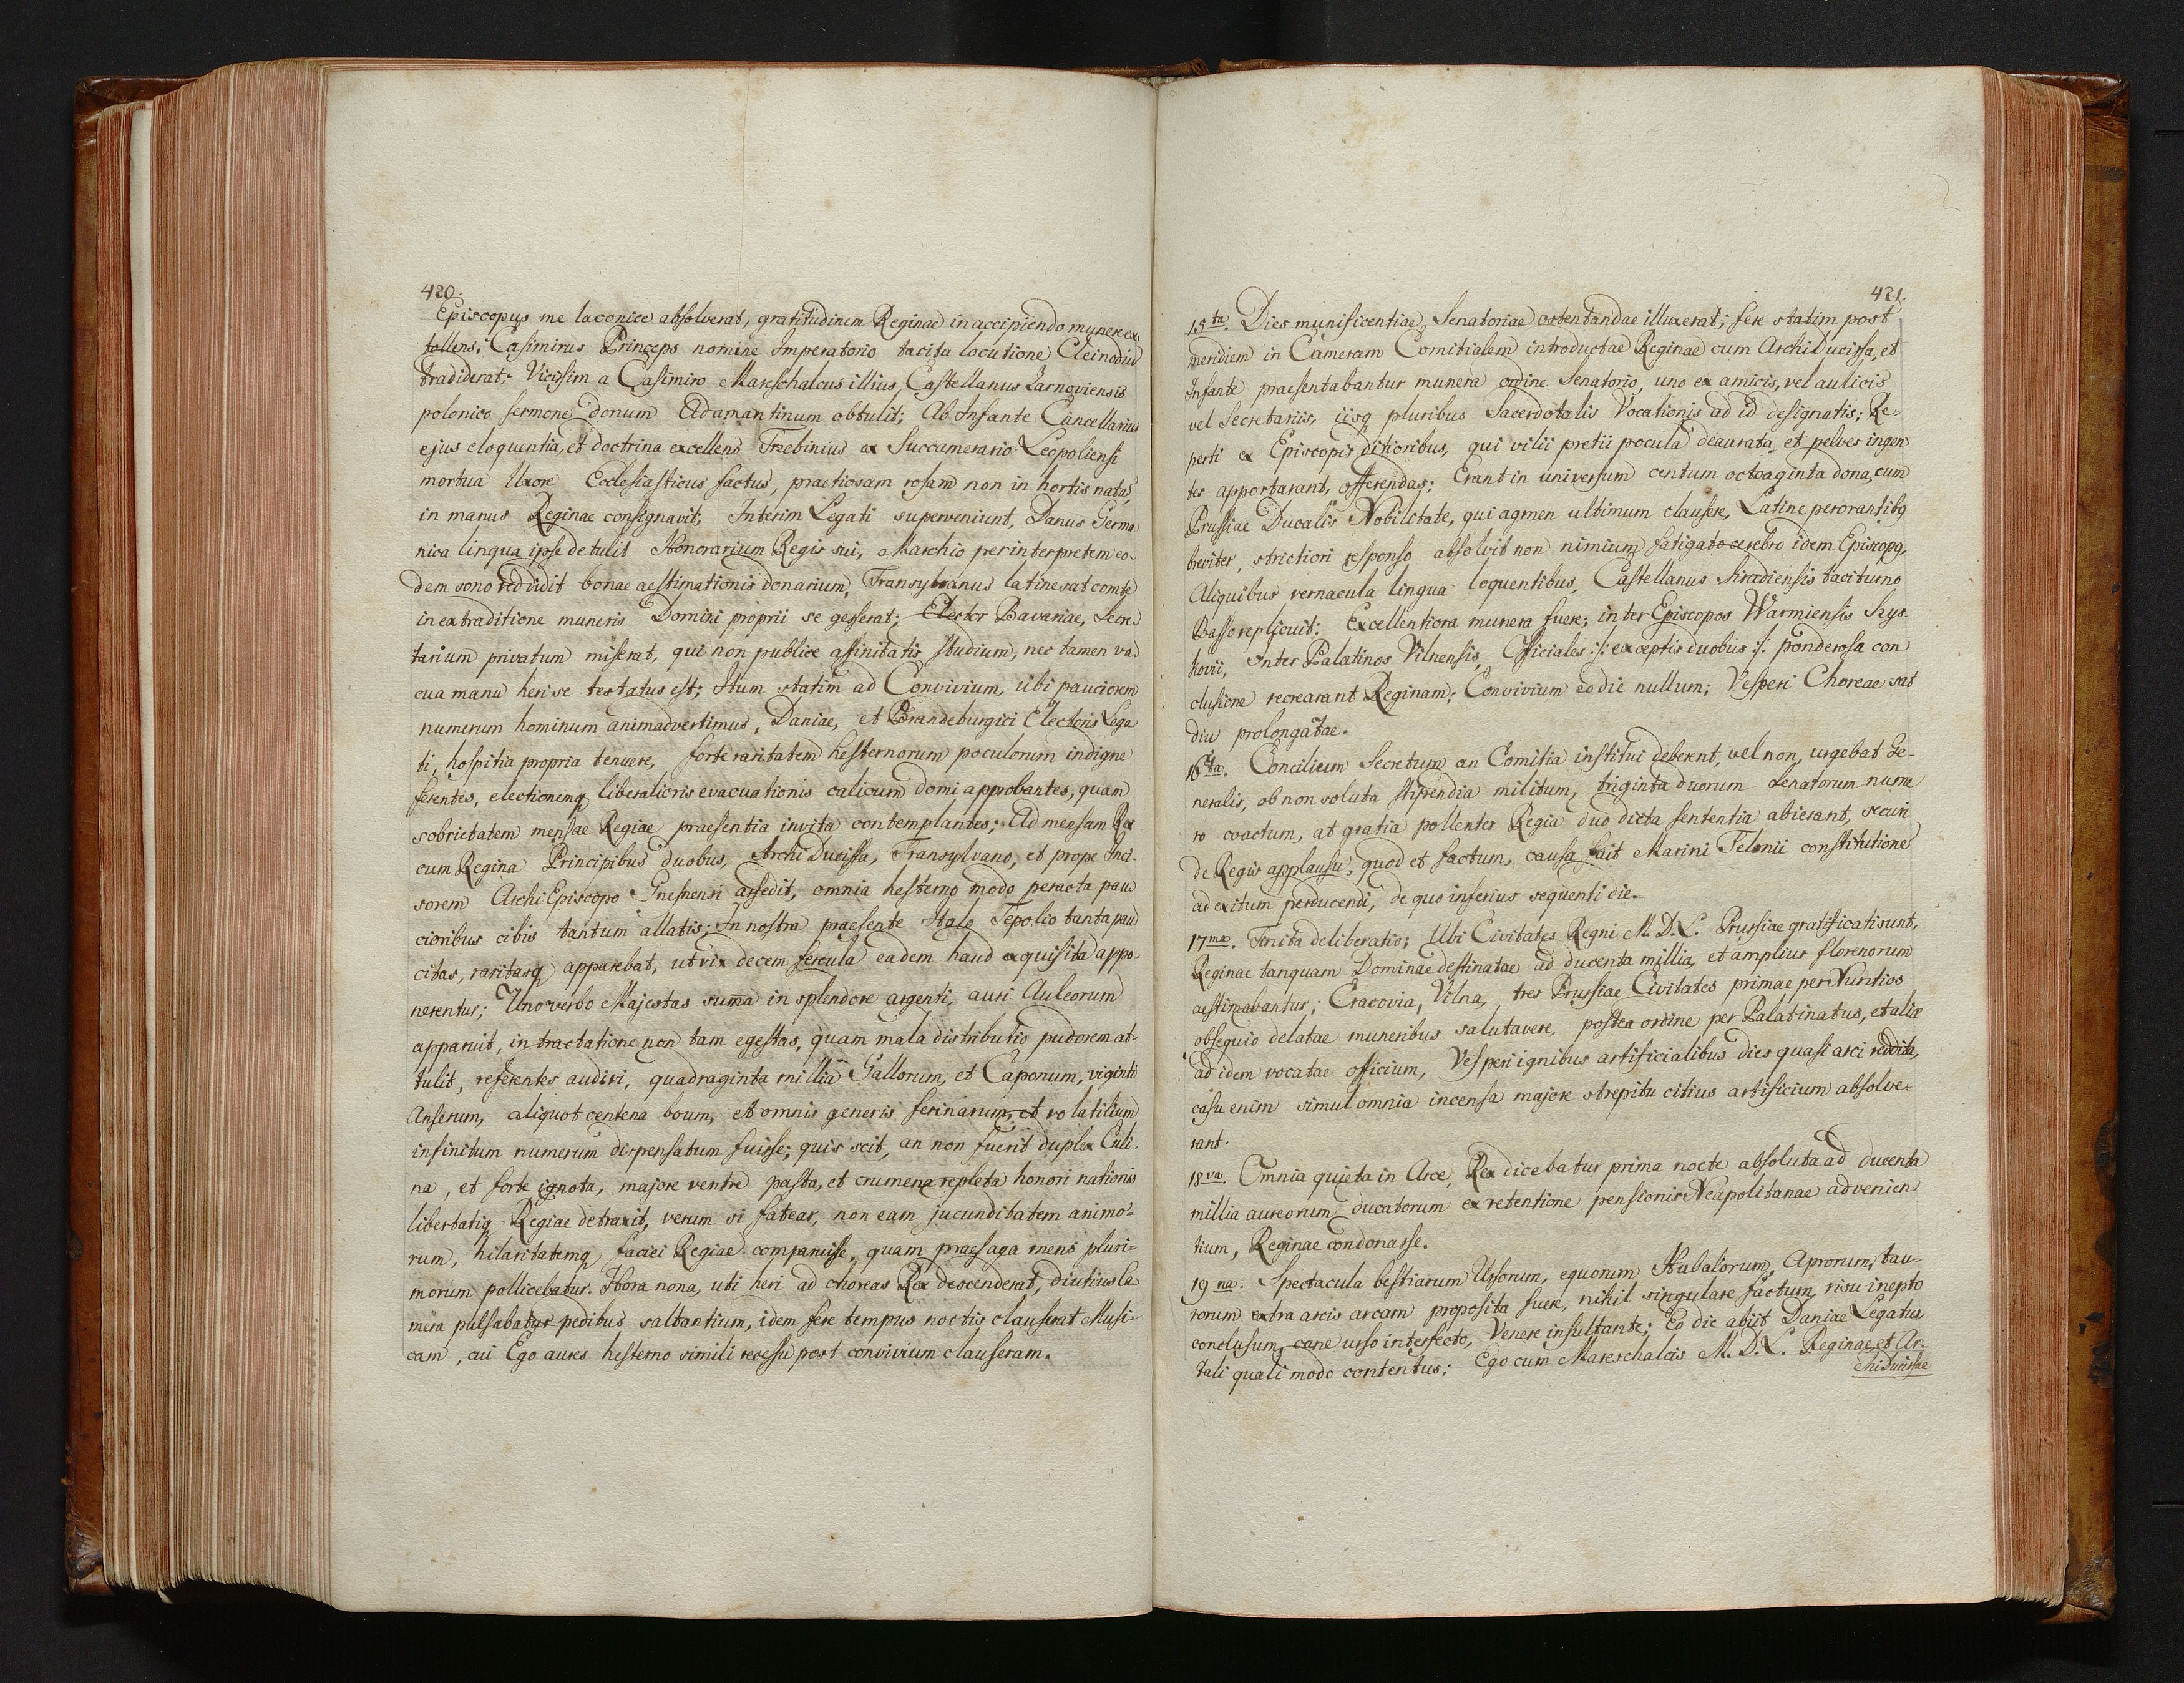 420.
Episcopus me laconice absolverat, gratitudinem Reginae in accipiendo munere ex
tollens. Casimirus Princeps nomine Imperatorio tacita locutione Cleinodiu
tradiderat; Vicissim a Casimiro Mareschalcus illius, Castellanus Zarnoviensis
polonico sermone donum Adamantinum obtulit; Ab Infante Cancellarius
ejus eloquentia, et doctrina excellens Trzebinius ex Succamerario Leopoliensi
mortua Uxore Ecclesiasticus factus, praetiosam rosam non in hortis nata
in manus Reginae consignavit; Interim Legati superveniunt, Danus Germa
nica lingua ipse detulit Honorarium Regis sui, Marchio per interpretem eo-
dem sono reddidit bonae aestimationis donarium, Transylvanus latine sat comte
in extraditione muneris Domini proprii se gesserat; Elector Bavariae, Secre
tarium privatum miserat, qui non publice affinitatis studium, nec tamen va
cua manu heri se testatus est; Itum statim ad Convivium, ubi pauciorem
numerum hominum animadvertimus, Daniae, et Brandeburgici Electoris Lega
ti, hospitia propria tenuere, forte raritatem hesternorum poculorum indigne
ferentes, electionemq liberalioris evacuationis calicum domi approbantes, quam
sobrietatem mensae Regiae praesentia invita contemplantes; Ad mensam Rex
cum Regina Principibus duobus, Archi Ducissa, Transylvano, et prope Inci-
sorem Archi Episcopo Gnesnensi assedit, omnia hesterno modo peracta pau
cioribus cibis tantum allatis; In nostra praesente Italo Tepolio tanta pau
citas, raritasq apparebat, ut vix decem fercula eadem haud exquisita appo-
nerentur; Uno verbo Majestas summa in splendore argenti, auri Auleorum
apparuit, in tractatione non tam egestas, quam mala distributio pudorem at-
tulit, referentes audivi, quadraginta millia Gallorum, et Caponum, viginti
Anserum, aliquot centena boum, et omnis generis ferinarum, et volatilium
infinitum numerum dispensatum fuisse; quis scit, an non fuerit duplex Culi-
na, et forte ignota, majore ventre pasta, et crumena repleta honori nationis
libertatiq Regiae detraxit, verum si fatear, non eam jucunditatem animo-
rum, hilaritatemq faciei Regiae comparuisse, quam praesaga mens pluri-
morum pollicebatur. Hora nona, uti heri ad choreas Rex descenderat, diutius ca
mera pulsabatur pedibus saltantium, idem fere tempus noctis clauserat Musi-
cam, cui Ego aures hesterno simili recessu post convivium clauseram.
421.
15ta. Dies munificentiae Senatoriae ostentandae illuxerat; fere statim post
meridiem in Cameram Comitialem introductae Reginae cum Archi Ducissa, et
Infante praesentabantur munera ordine Senatorio, uno ex amicis, vel aulicis
vel Secretariis, iisq pluribus Sacerdotalis Vocationis ad id designatis; Re-
perti ex Episcopis ditioribus, qui vilii pretii pocula deaurata, et pelves ingen
tes apportarant, offerendas; Erant in universum centum octoaginta dona, cum
Prussiae Ducalis Nobilitate, qui agmen ultimum clausere, Latine perorantibq
breviter, strictiori responso absolvit non nimium fatigato cerebro idem Episcopq,
Aliquibus vernacula lingua loquentibus, Castellanus Siradiensis taciturno
Basso replicuit; Excellentiora munera fuere; inter Episcopos Warmiensis Szys-
kovii, Inter Palatinos Vilnensis, Officiales :/: exceptis duobus :/: ponderosa con
clusione recrearant Reginam; Convivium eo die nullum; Vesperi Choreae sat
diu prolongatae.
16ta. Concilium Secretum an Comitia institui deberent, vel non, urgebat Ge-
neralis, ob non soluta stipendia militum, triginta duorum Senatorum nume
ro coactum, at gratia pollentes Regia duo dicta sententia abierant, securi
de Regis applausu, quod et factum, causa fuit Marini Telonii constitutione
ad exitum perducendi, de quo inferius sequenti die.
17ma. Finita deliberatio; Ubi Civitates Regni M. D. L. Prussiae gratificati sunt,
Reginae tanquam Dominae destinatae ad ducenta millia, et amplius florenorum
aestimabantur; Cracovia, Vilna, tres Prussiae Civitates primae per Nuntios
obsequio delatae muneribus salutavere, postea ordine per Palatinatus, et aliae
ad idem vocatae officium, Vesperi ignibus artificialibus dies quasi arci reddita,
casu enim simul omnia incensa majore strepitu citius artificium absolve-
rant.
18va. Omnia quieta in Arce, Rex dicebatur prima nocte absoluta ad ducenta
millia aureorum ducatorum ex retentione pensionis Neapolitanae advenien
tium, Reginae condonasse.
19na. Spectacula bestiarum Ursorum, equorum Hubalorum, Aprorum, tau-
rorum extra arcis arcam proposita fuere, nihil singulare factum, risu inepto
conclusum, cane urso interfecto, Venere insultante; Eo die abiit Daniae Legatus
tali quali modo contentus; Ego cum Mareschalcis M. D. L. Reginae, et Ar-
chiducissae